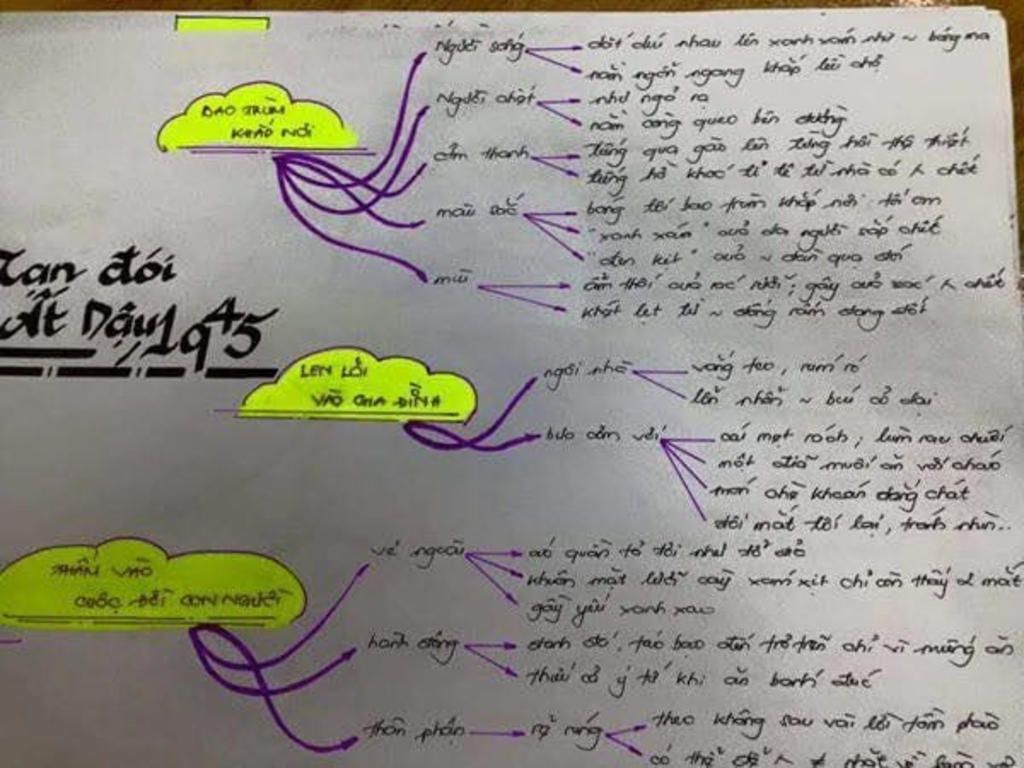 Người sống
dắt díu nhau lên xanh xám như ~ bóng ma
nằm ngổn ngang khắp lều chợ
BAO TRÙM
KHẮP NƠI
Người chết
như ngả rạ
nằm còng queo bên đường
âm thanh
tiếng quạ gào lên từng hồi thê thiết
tiếng hờ khóc tỉ tê từ nhà có λ chết
màu sắc
bóng tối bao trùm khắp nơi: tối om
"xanh xám" của da người sắp chết
"đen kịt" của ~ đàn quạ đói
mùi
ẩm thối của rác rưởi; gây của xác λ chết
khét lẹt từ ~ đống rấm đang đốt
Nạn đói
Ất Dậu 1945
LEN LỎI
VÀO GIA ĐÌNH
ngôi nhà
vắng teo, rúm ró
lổn nhổn ~ búi cỏ dại
bữa cơm với
cái mẹt rách; lùm rau chuối
một đĩa muối ăn với cháo
món chè khoán đắng chát
đôi mắt tối lại, tránh nhìn...
THẤM VÀO
CUỘC ĐỜI CON NGƯỜI
vẻ ngoài
áo quần tả tơi như tổ đỉa
khuôn mặt lưỡi cày xám xịt chỉ còn thấy 2 mắt
gầy yếu xanh xao
hành động
đanh đá, táo bạo đến trơ trẽn chỉ vì miếng ăn
thiếu cả ý tứ khi ăn bánh đúc
thân phận
rẻ rúng
theo không sau vài lời tầm phào
có thể để λ ≠ nhặt về làm vợ